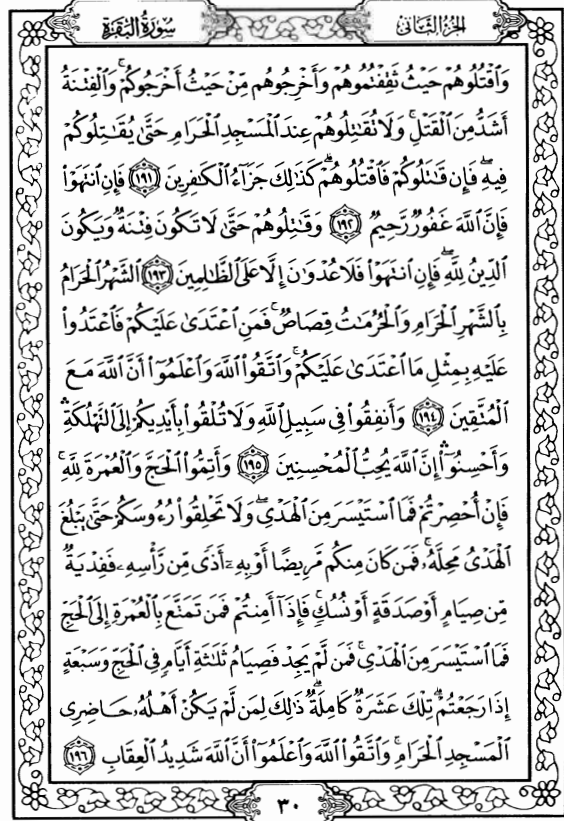 الجزء الثاني
سورة البقرة
وَٱقۡتُلُوهُمۡ حَيۡثُ ثَقِفۡتُمُوهُمۡ وَأَخۡرِجُوهُم مِّنۡ حَيۡثُ أَخۡرَجُوكُمۡۚ وَٱلۡفِتۡنَةُ
أَشَدُّ مِنَ ٱلۡقَتۡلِۚ وَلَا تُقَٰتِلُوهُمۡ عِندَ ٱلۡمَسۡجِدِ ٱلۡحَرَامِ حَتَّىٰ يُقَٰتِلُوكُمۡ
فِيهِۖ فَإِن قَٰتَلُوكُمۡ فَٱقۡتُلُوهُمۡۗ كَذَٰلِكَ جَزَآءُ ٱلۡكَٰفِرِينَ ١٩١ فَإِنِ ٱنتَهَوۡاْ
فَإِنَّ ٱللَّهَ غَفُورٞ رَّحِيمٞ ١٩٢ وَقَٰتِلُوهُمۡ حَتَّىٰ لَا تَكُونَ فِتۡنَةٞ وَيَكُونَ
ٱلدِّينُ لِلَّهِۖ فَإِنِ ٱنتَهَوۡاْ فَلَا عُدۡوَٰنَ إِلَّا عَلَى ٱلظَّٰلِمِينَ ١٩٣ ٱلشَّهۡرُ ٱلۡحَرَامُ
بِٱلشَّهۡرِ ٱلۡحَرَامِ وَٱلۡحُرُمَٰتُ قِصَاصٞۚ فَمَنِ ٱعۡتَدَىٰ عَلَيۡكُمۡ فَٱعۡتَدُواْ
عَلَيۡهِ بِمِثۡلِ مَا ٱعۡتَدَىٰ عَلَيۡكُمۡۚ وَٱتَّقُواْ ٱللَّهَ وَٱعۡلَمُوٓاْ أَنَّ ٱللَّهَ مَعَ
ٱلۡمُتَّقِينَ ١٩٤ وَأَنفِقُواْ فِي سَبِيلِ ٱللَّهِ وَلَا تُلۡقُواْ بِأَيۡدِيكُمۡ إِلَى ٱلتَّهۡلُكَةِۛ
وَأَحۡسِنُوٓاْۛ إِنَّ ٱللَّهَ يُحِبُّ ٱلۡمُحۡسِنِينَ ١٩٥ وَأَتِمُّواْ ٱلۡحَجَّ وَٱلۡعُمۡرَةَ لِلَّهِۚ
فَإِنۡ أُحۡصِرۡتُمۡ فَمَا ٱسۡتَيۡسَرَ مِنَ ٱلۡهَدۡيِۖ وَلَا تَحۡلِقُواْ رُءُوسَكُمۡ حَتَّىٰ يَبۡلُغَ
ٱلۡهَدۡيُ مَحِلَّهُۥۚ فَمَن كَانَ مِنكُم مَّرِيضًا أَوۡ بِهِۦٓ أَذٗى مِّن رَّأۡسِهِۦ فَفِدۡيَةٞ
مِّن صِيَامٍ أَوۡ صَدَقَةٍ أَوۡ نُسُكٖۚ فَإِذَآ أَمِنتُمۡ فَمَن تَمَتَّعَ بِٱلۡعُمۡرَةِ إِلَى ٱلۡحَجِّ
فَمَا ٱسۡتَيۡسَرَ مِنَ ٱلۡهَدۡيِۚ فَمَن لَّمۡ يَجِدۡ فَصِيَامُ ثَلَٰثَةِ أَيَّامٖ فِي ٱلۡحَجِّ وَسَبۡعَةٍ
إِذَا رَجَعۡتُمۡۗ تِلۡكَ عَشَرَةٞ كَامِلَةٞۗ ذَٰلِكَ لِمَن لَّمۡ يَكُنۡ أَهۡلُهُۥ حَاضِرِي
ٱلۡمَسۡجِدِ ٱلۡحَرَامِۚ وَٱتَّقُواْ ٱللَّهَ وَٱعۡلَمُوٓاْ أَنَّ ٱللَّهَ شَدِيدُ ٱلۡعِقَابِ ١٩٦
٣٠